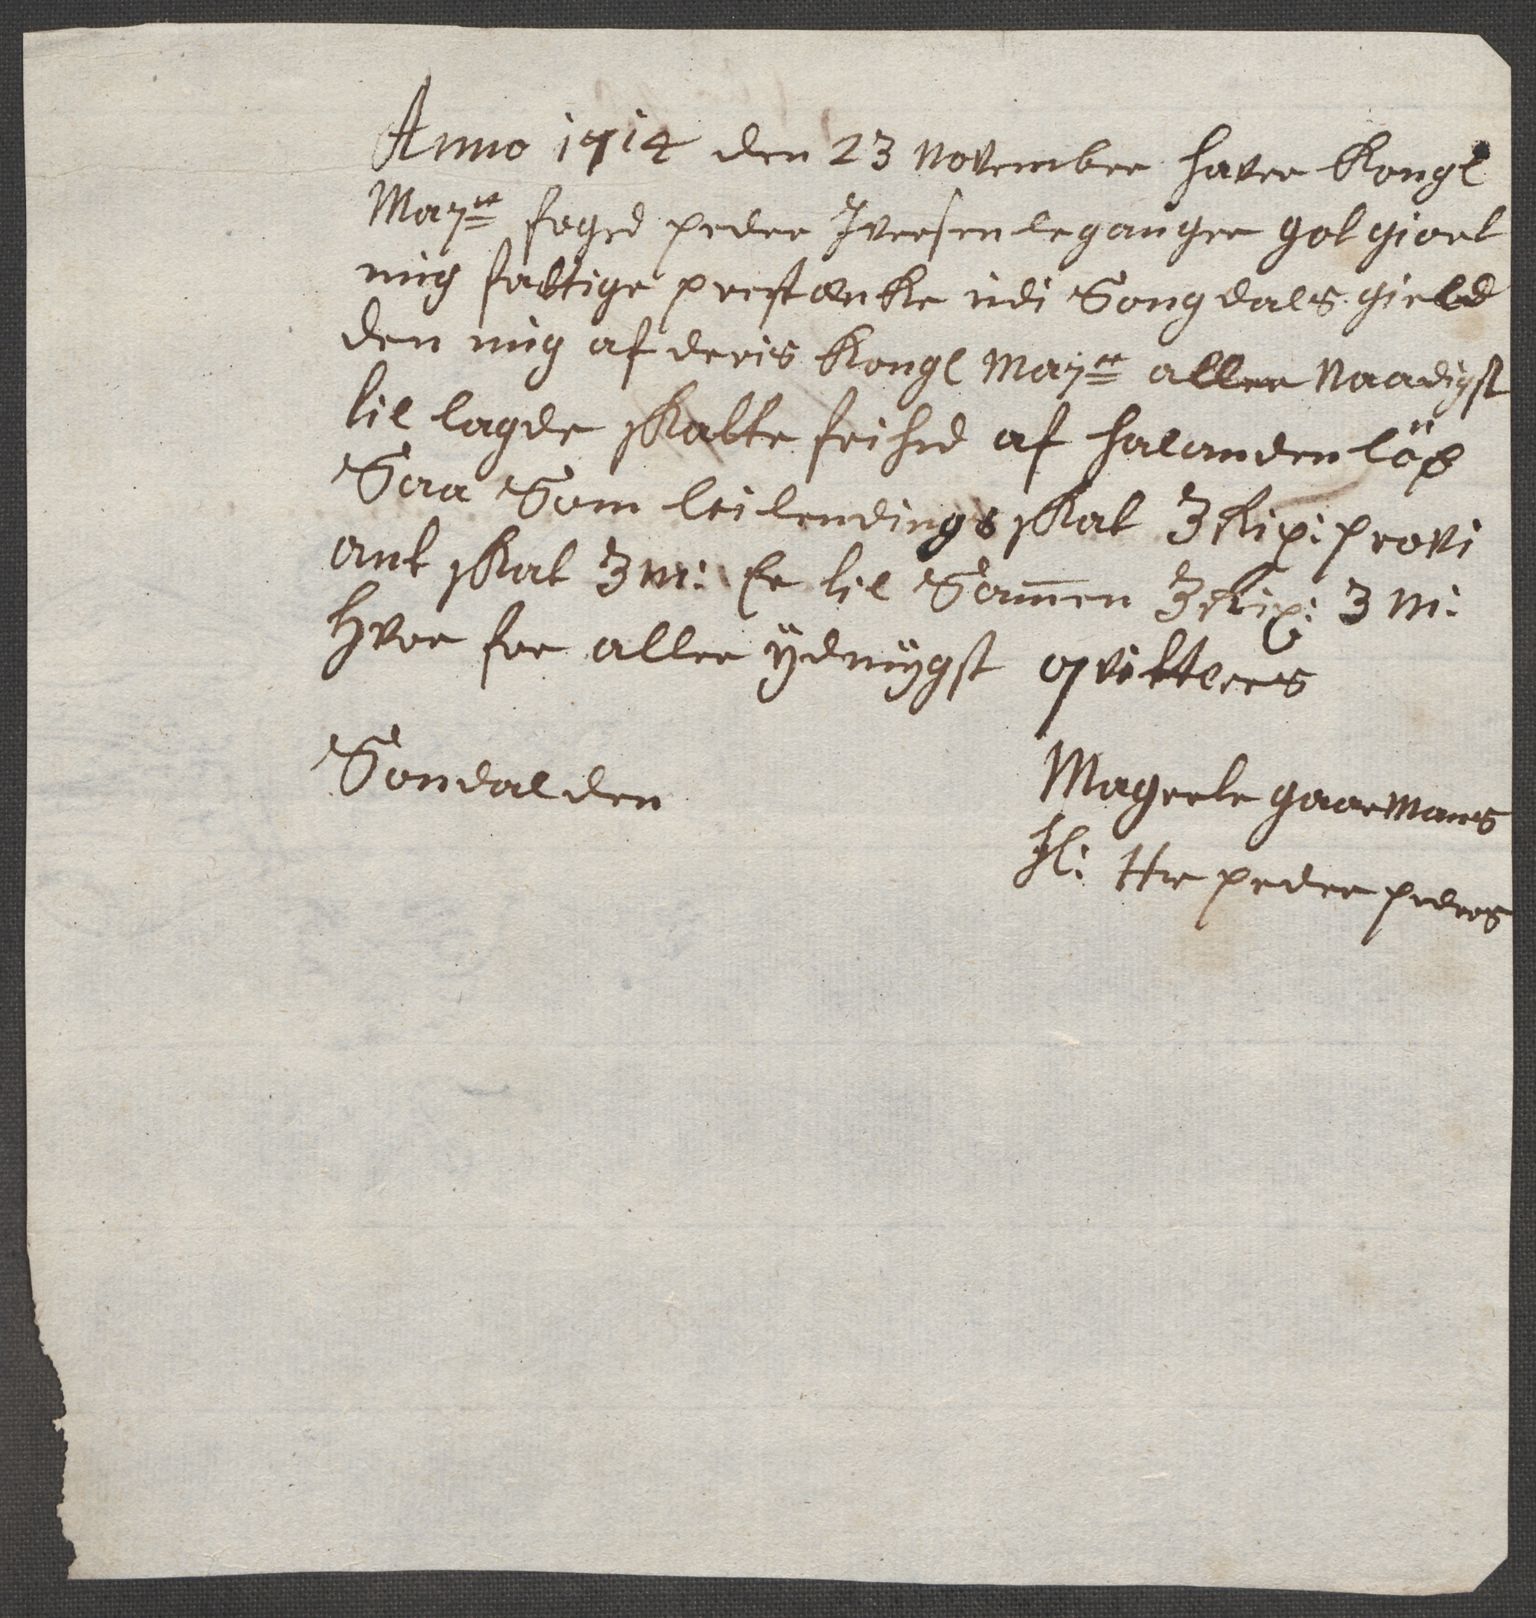 Anno 1714 den 23 November haver Kongl
May:tt foged peder Iversen leganger got giort
mig fattige prestænke udi Songdals gield
den mig af deris Kongl May:tt aller Naadigst
til lagde skatte frihed af halanden löb
Saa Som leilendings skat 3 Rix: provi
ant skat 3 m: Er til Samen 3 Rix: 3 m:
Hvor for aller ÿdmÿgst qvitteres
Sondal den
Magrete gaarmans
Sl: Hr peder peders